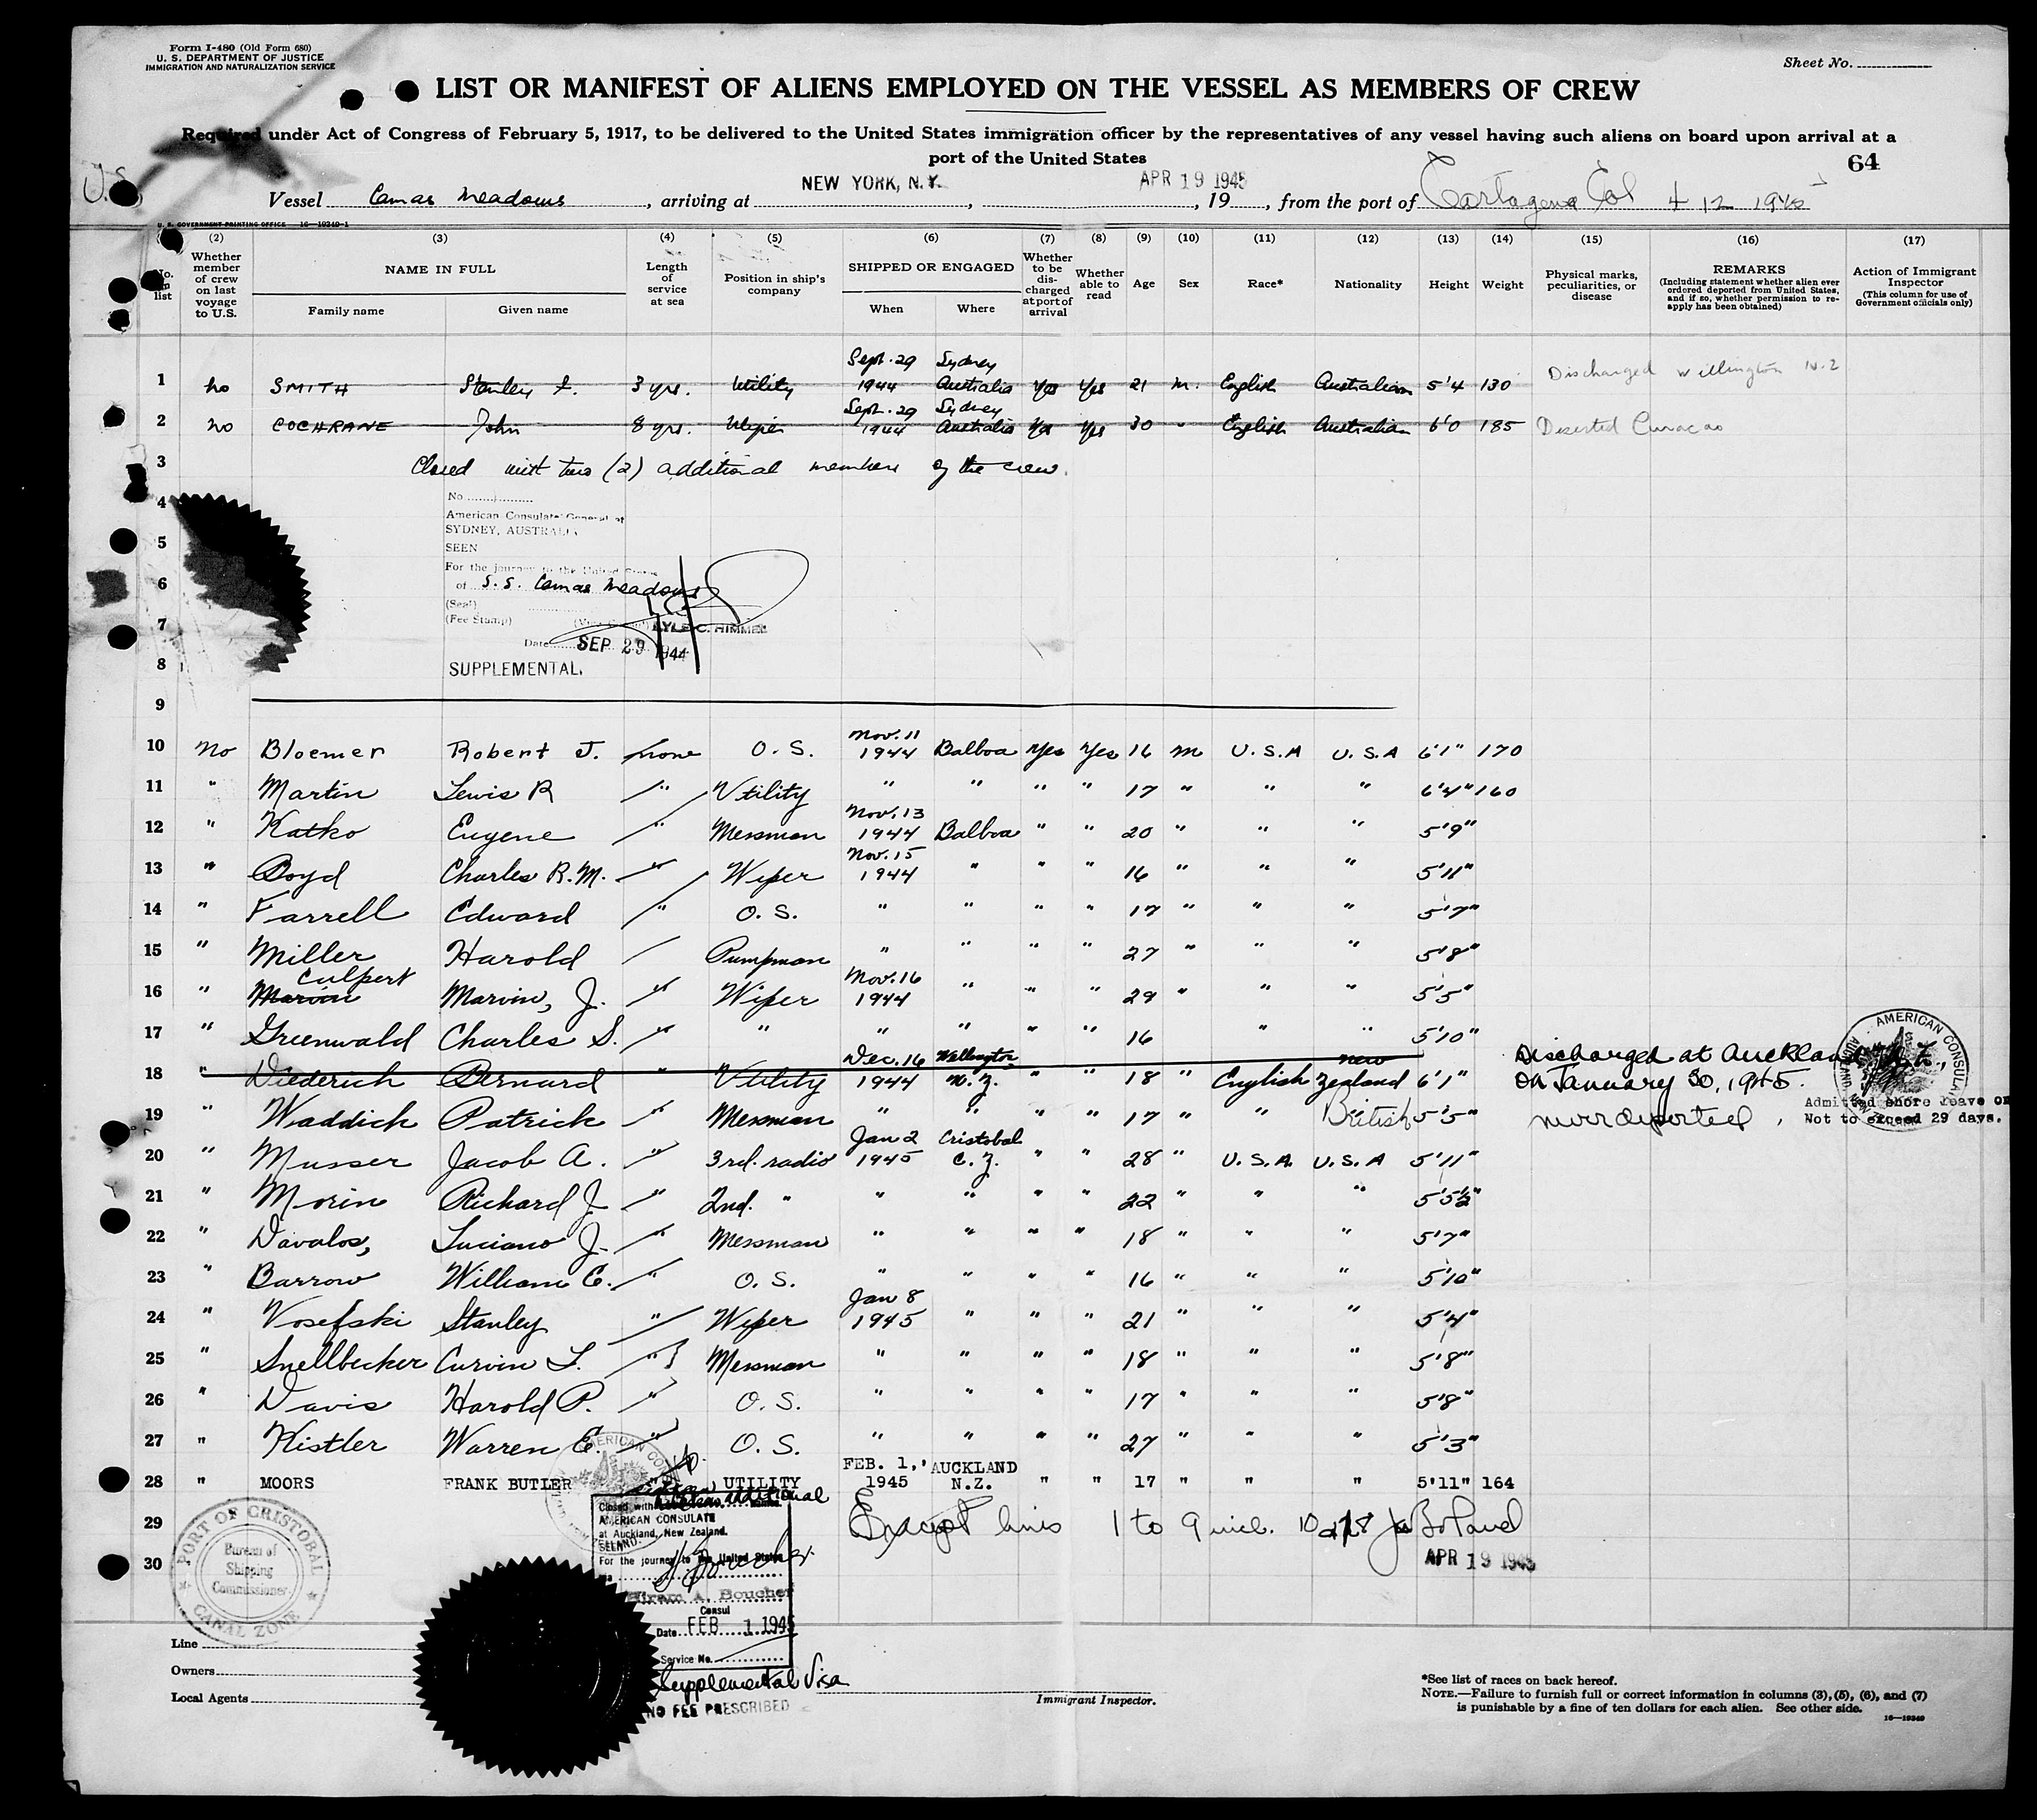 Form I-480 (Old Form 680)
U. S. DEPARTMENT OF JUSTICE
IMMIGRATION AND NATURALIZATION SERVICE
Sheet No.
LIST OR MANIFEST OF ALIENS EMPLOYED ON THE VESSEL AS MEMBERS OF CREW
Required under Act of Congress of February 5, 1917, to be delivered to the United States immigration officer by the representatives of any vessel having such aliens on board upon arrival at a
port of the United States
64
U.S.
Vessel Camas Meadows, arriving at NEW YORK, N.Y., APR 19 1945, 19, from the port of Cartagena Col 4 12 1945
U. S. GOVERNMENT PRINTING OFFICE 16—19349-1
(2) (3) (4) (5) (6) (7) (8) (9) (10) (11) (12) (13) (14) (15) (16) (17)
No. on list
Whether member of crew on last voyage to U.S.
NAME IN FULL
Family name
Given name
Length of service at sea
Position in ship's company
SHIPPED OR ENGAGED
When
Where
Whether to be discharged at port of arrival
Whether able to read
Age
Sex
Race*
Nationality
Height
Weight
Physical marks, peculiarities, or disease
REMARKS
(Including statement whether alien ever ordered deported from United States, and if so, whether permission to reapply has been obtained)
Action of Immigrant Inspector
(This column for use of Government officials only)
1 no SMITH Stanley 3 yrs. Utility Sept. 29 1944 Sydney Australia Yes Yes 21 m. English Australian 5'4 130 Discharged Willington N.Z
2 no COCHRANE John 8 yrs. Wiper Sept. 29 1944 Sydney Australia Yes Yes 30 " English Australian 6'0 185 Deserted Curacao
3 Closed with two (2) additional members of the crew.
4 No
American Consulate General at
5 SYDNEY, AUSTRALIA
SEEN
For the journey to the United States
6 of S.S. Camas Meadows
(Seal)
7 (Fee Stamp) (Vice Consul) LYLE C. HIMMEL
Date SEP 29 1944
8 SUPPLEMENTAL.
9
10 No Bloemer Robert J. none O.S. Nov. 11 1944 Balboa Yes Yes 16 m U.S.A U.S.A 6'1" 170
11 " Martin Lewis R " Utility " " " " 17 " " " 6'4" 160
12 " Katko Eugene " Messman Nov. 13 1944 Balboa " " 20 " " " 5'9"
13 " Boyd Charles R.M. " Wiper Nov. 15 1944 " " " 16 " " " 5'11"
14 " Farrell Edward " O.S. " " " " 17 " " " 5'7"
15 " Miller Harold Pumpman " " " " 27 " " " 5'8"
16 " Marvin Culpert Marvin, J. " Wiper Nov. 16 1944 " " " 29 " " " 5'5"
17 " Greenwald Charles S. " " " " " " 16 " " 5'10"
18 " Diederich Bernard " Utility Dec. 16 1944 Wellington N.Z. " " 18 " English New Zealand 6'1" Discharged at Auckland N.Z., on January 30, 1945.
AMERICAN CONSULATE
19 " Waddick Patrick " Messman " " " " 17 " " British 5'5" never deported, Admitted shore leave on Not to exceed 29 days.
20 " Musser Jacob A. " 3rd. radio Jan 2 1945 Cristobal C.Z. " " 28 " U.S.A. U.S.A 5'11"
21 " Morin Richard J. " 2nd. " " " " " 22 " " " 5'5½"
22 " Davalos, Luciano J. " Messman " " " " 18 " " " 5'7"
23 " Barrow William C. " O.S. " " " " 16 " " " 5'10"
24 " Vosefski Stanley " Wiper Jan 8 1945 " " " 21 " " " 5'4"
25 " Snellbecker Curvin L. " Messman " " " " 18 " " " 5'8"
26 " Davis Harold P. " O.S. " " " " 17 " " " 5'8"
27 " Kistler Warren E. " O.S. " " " " 27 " " " 5'3"
28 " MOORS FRANK BUTLER " UTILITY FEB. 1, 1945 AUCKLAND N.Z. " " 17 " " " 5'11" 164
Closed with additional
AMERICAN CONSULATE
at Auckland, New Zealand.
SEEN
For the journey to the United States
Hiram A. Boucher
Consul
Date FEB 1 1945
Service No.
Supplemental Visa
NO FEE PRESCRIBED
29 Except lines 1 to 9 incl. 10 28
30 APR 19 1945
PORT OF CRISTOBAL
Bureau of
Shipping
Commissioner
CANAL ZONE
Line
Owners
Local Agents
Immigrant Inspector.
*See list of races on back hereof.
NOTE.—Failure to furnish full or correct information in columns (3), (5), (6), and (7)
is punishable by a fine of ten dollars for each alien. See other side.
16—19349